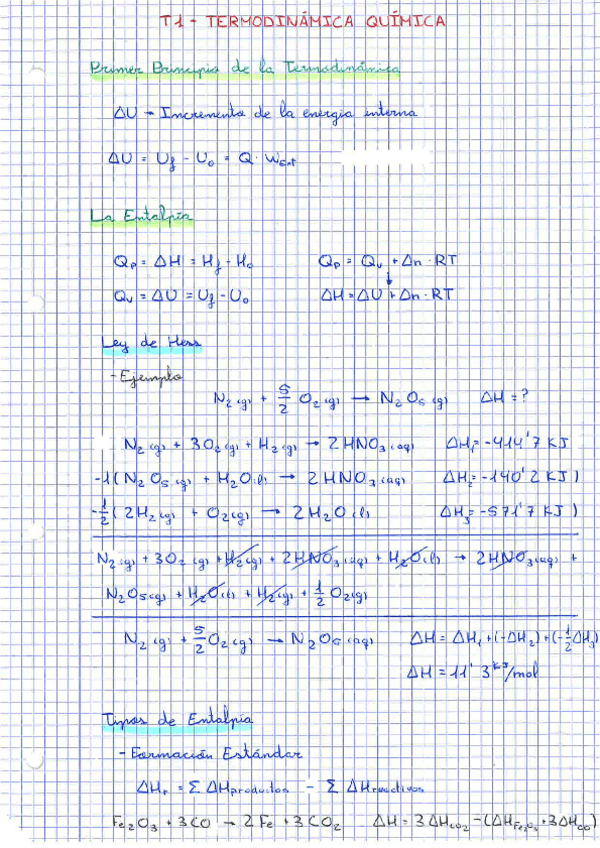 T1 - TERMODINÁMICA QUÍMICA
Primer Principio de la Termodinámica
ΔU → Incremento de la energía interna
ΔU = Uf - U₀ = Q · Wext
La Entalpía
Qp = ΔH = Hf - H₀ Qp = Qv + Δn · RT
Qv = ΔU = Uf - U₀ ΔH = ΔU + Δn · RT
Ley de Hess
- Ejemplo
N₂(g) + 5/2 O₂(g) → N₂O₅(g) ΔH = ?
N₂(g) + 3O₂(g) + H₂(g) → 2HNO₃(aq) ΔH₁ = -414'7 KJ
-1(N₂O₅(g) + H₂O(l) → 2HNO₃(aq) ΔH₂ = -140'2 KJ)
-1/2(2H₂(g) + O₂(g) → 2H₂O(l) ΔH₃ = -571'7 KJ)
N₂(g) + 3O₂(g) + H₂(g) + 2HNO₃(aq) + H₂O(l) → 2HNO₃(aq) +
N₂O₅(g) + H₂O(l) + H₂(g) + 1/2 O₂(g)
N₂(g) + 5/2 O₂(g) → N₂O₅(aq) ΔH = ΔH₁ + (-ΔH₂) + (-1/2 ΔH₃)
ΔH = 11'3 KJ/mol
Tipos de Entalpía
- Formación Estándar
ΔHr = Σ ΔHproductos - Σ ΔHreactivos
Fe₂O₃ + 3CO → 2Fe + 3CO₂ ΔH = 3ΔHCO₂ - (ΔHFe₂O₃ + 3ΔHCO)